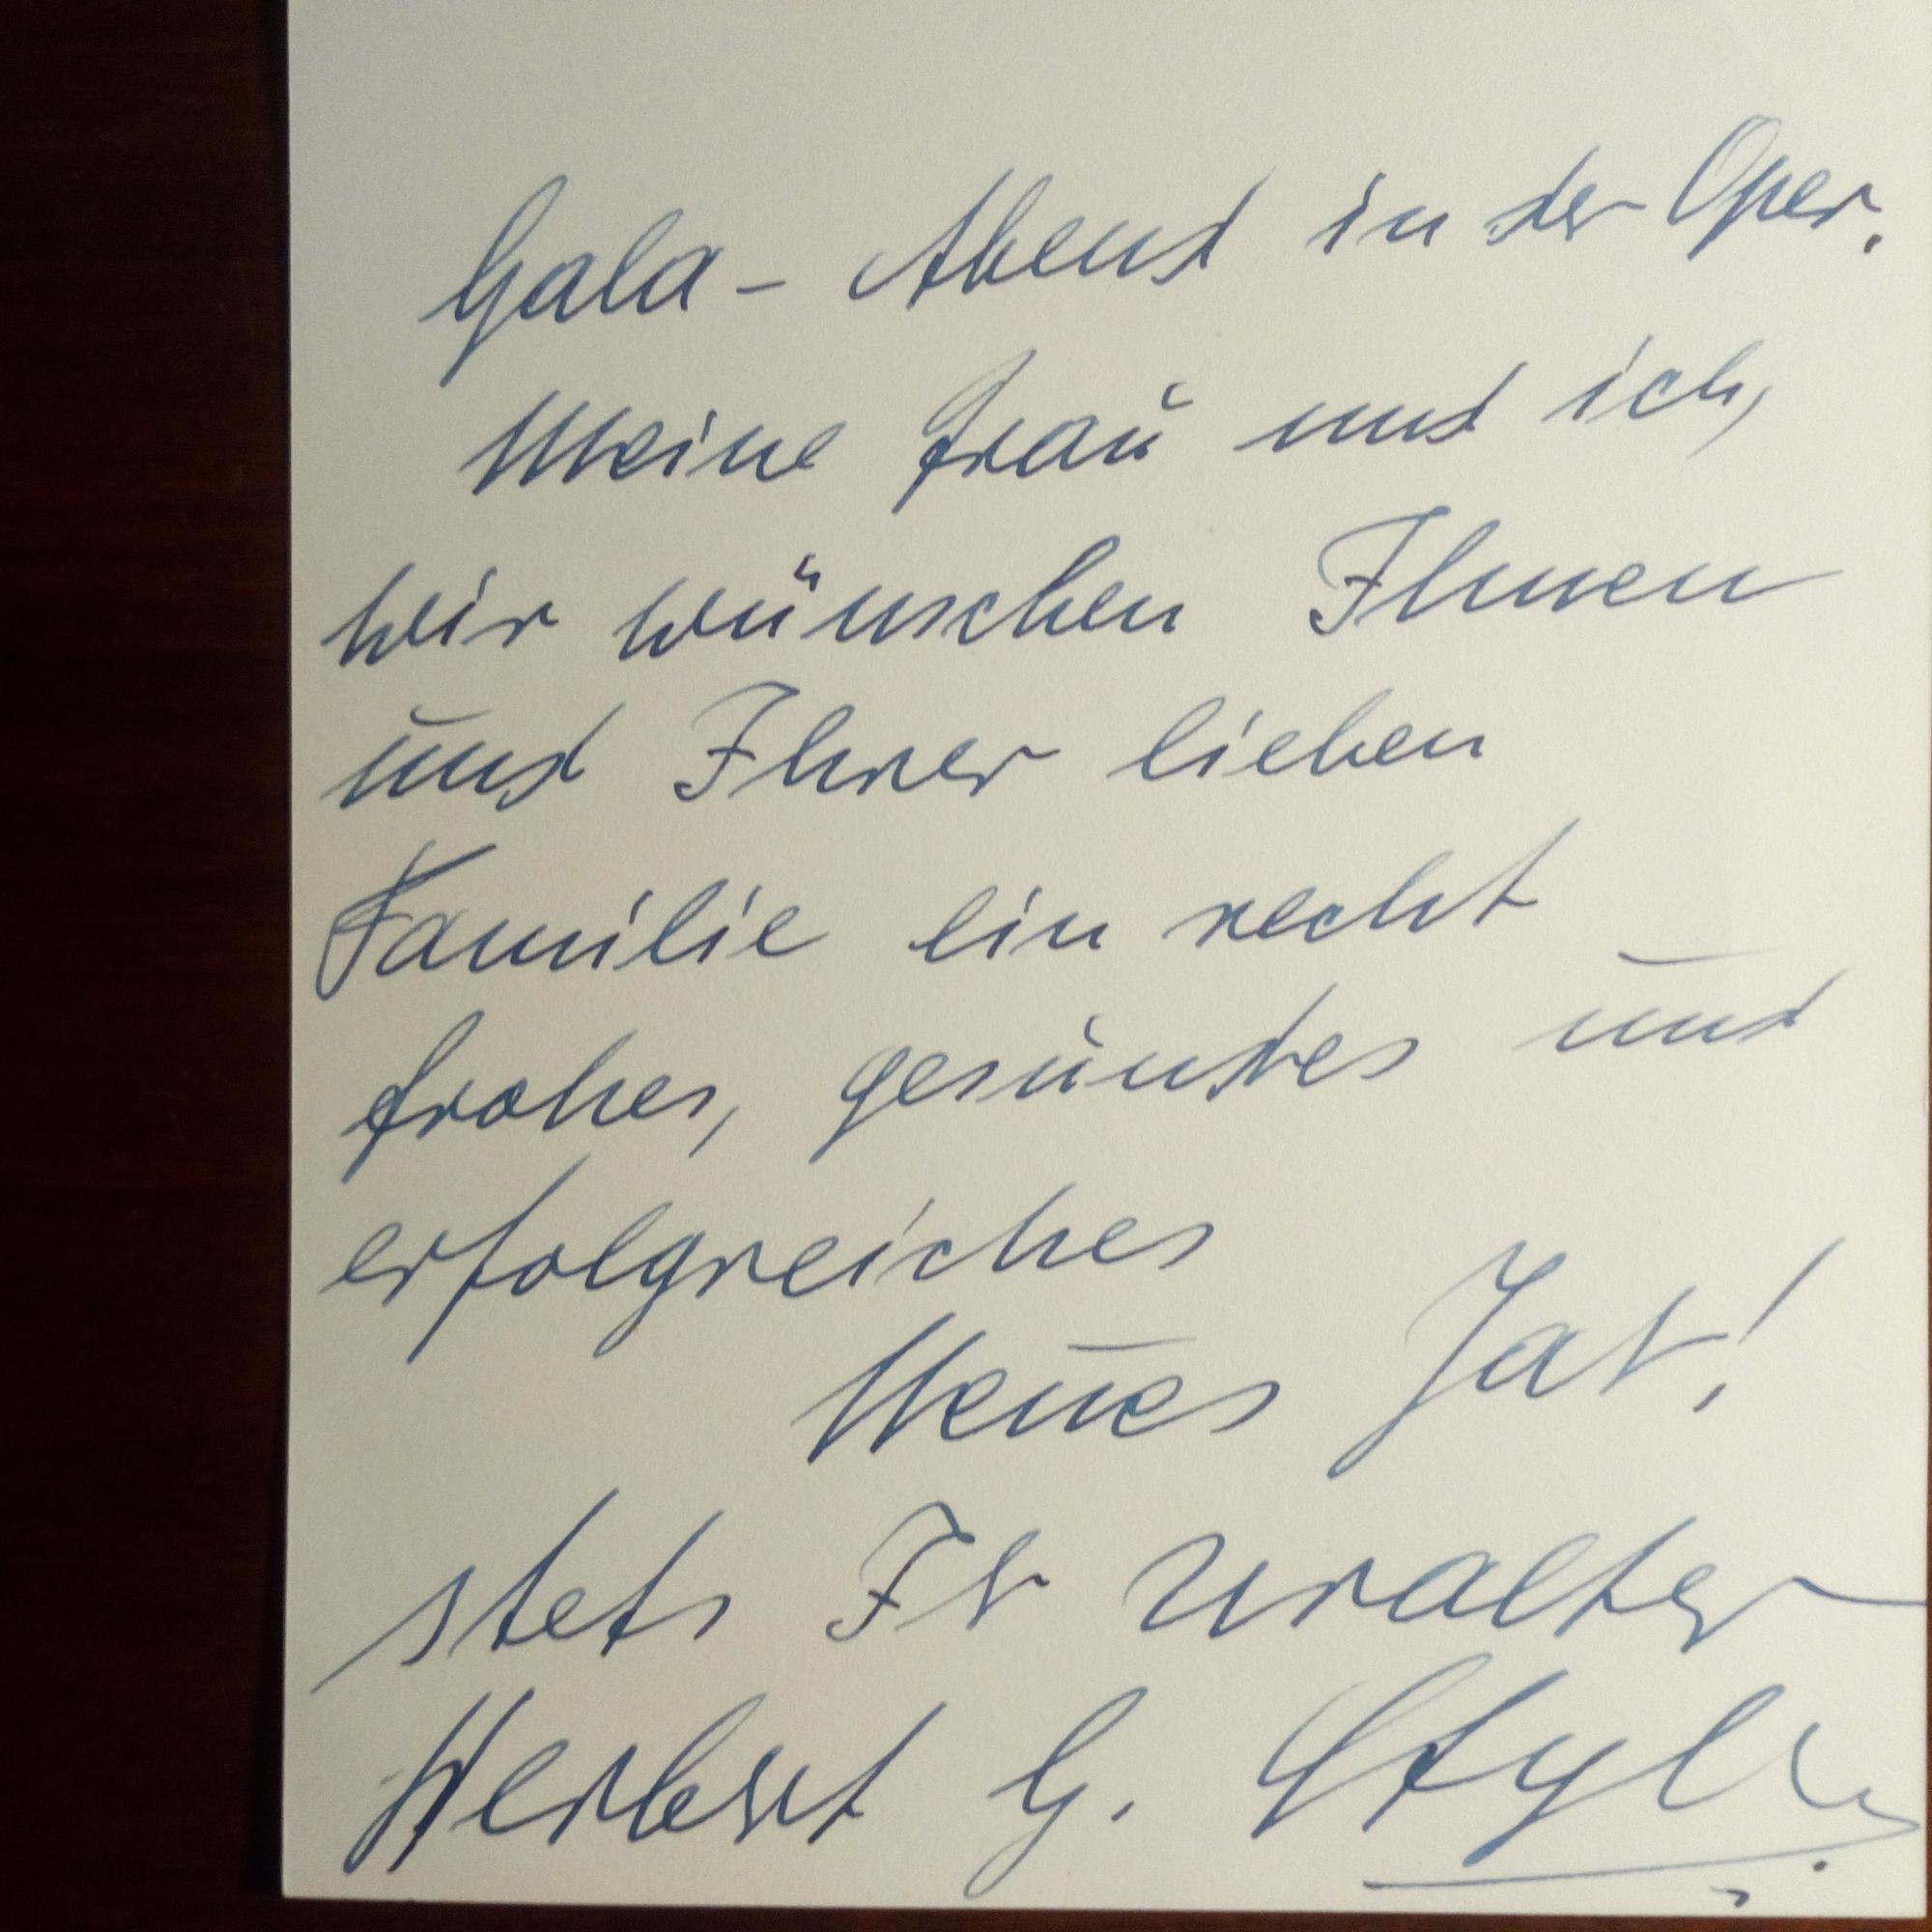 Gala - Abend in der Oper.
Meine Frau und ich,
wir wünschen Ihnen
und Ihrer lieben
Familie ein recht
frohes, gesundes und
erfolgreiches
Neues Jahr!
stets Ihr uralter
Herbert G.